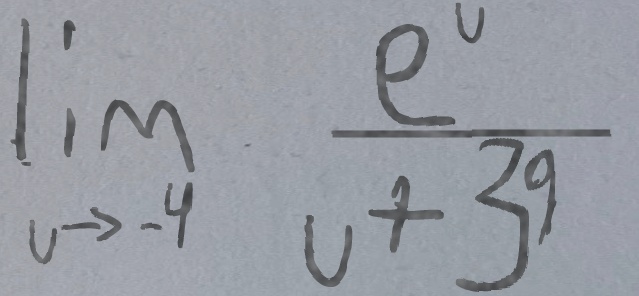 lim u→-4 e^u / (u + 3^9)